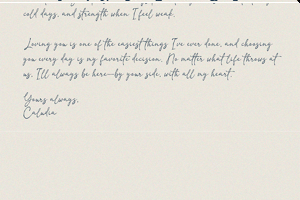 cold days, and strength when I feel weak.
Loving you is one of the easiest things I've ever done, and choosing
you every day is my favorite decision. No matter what life throws at
us, I'll always be here—by your side, with all my heart.
Yours always,
Caludia